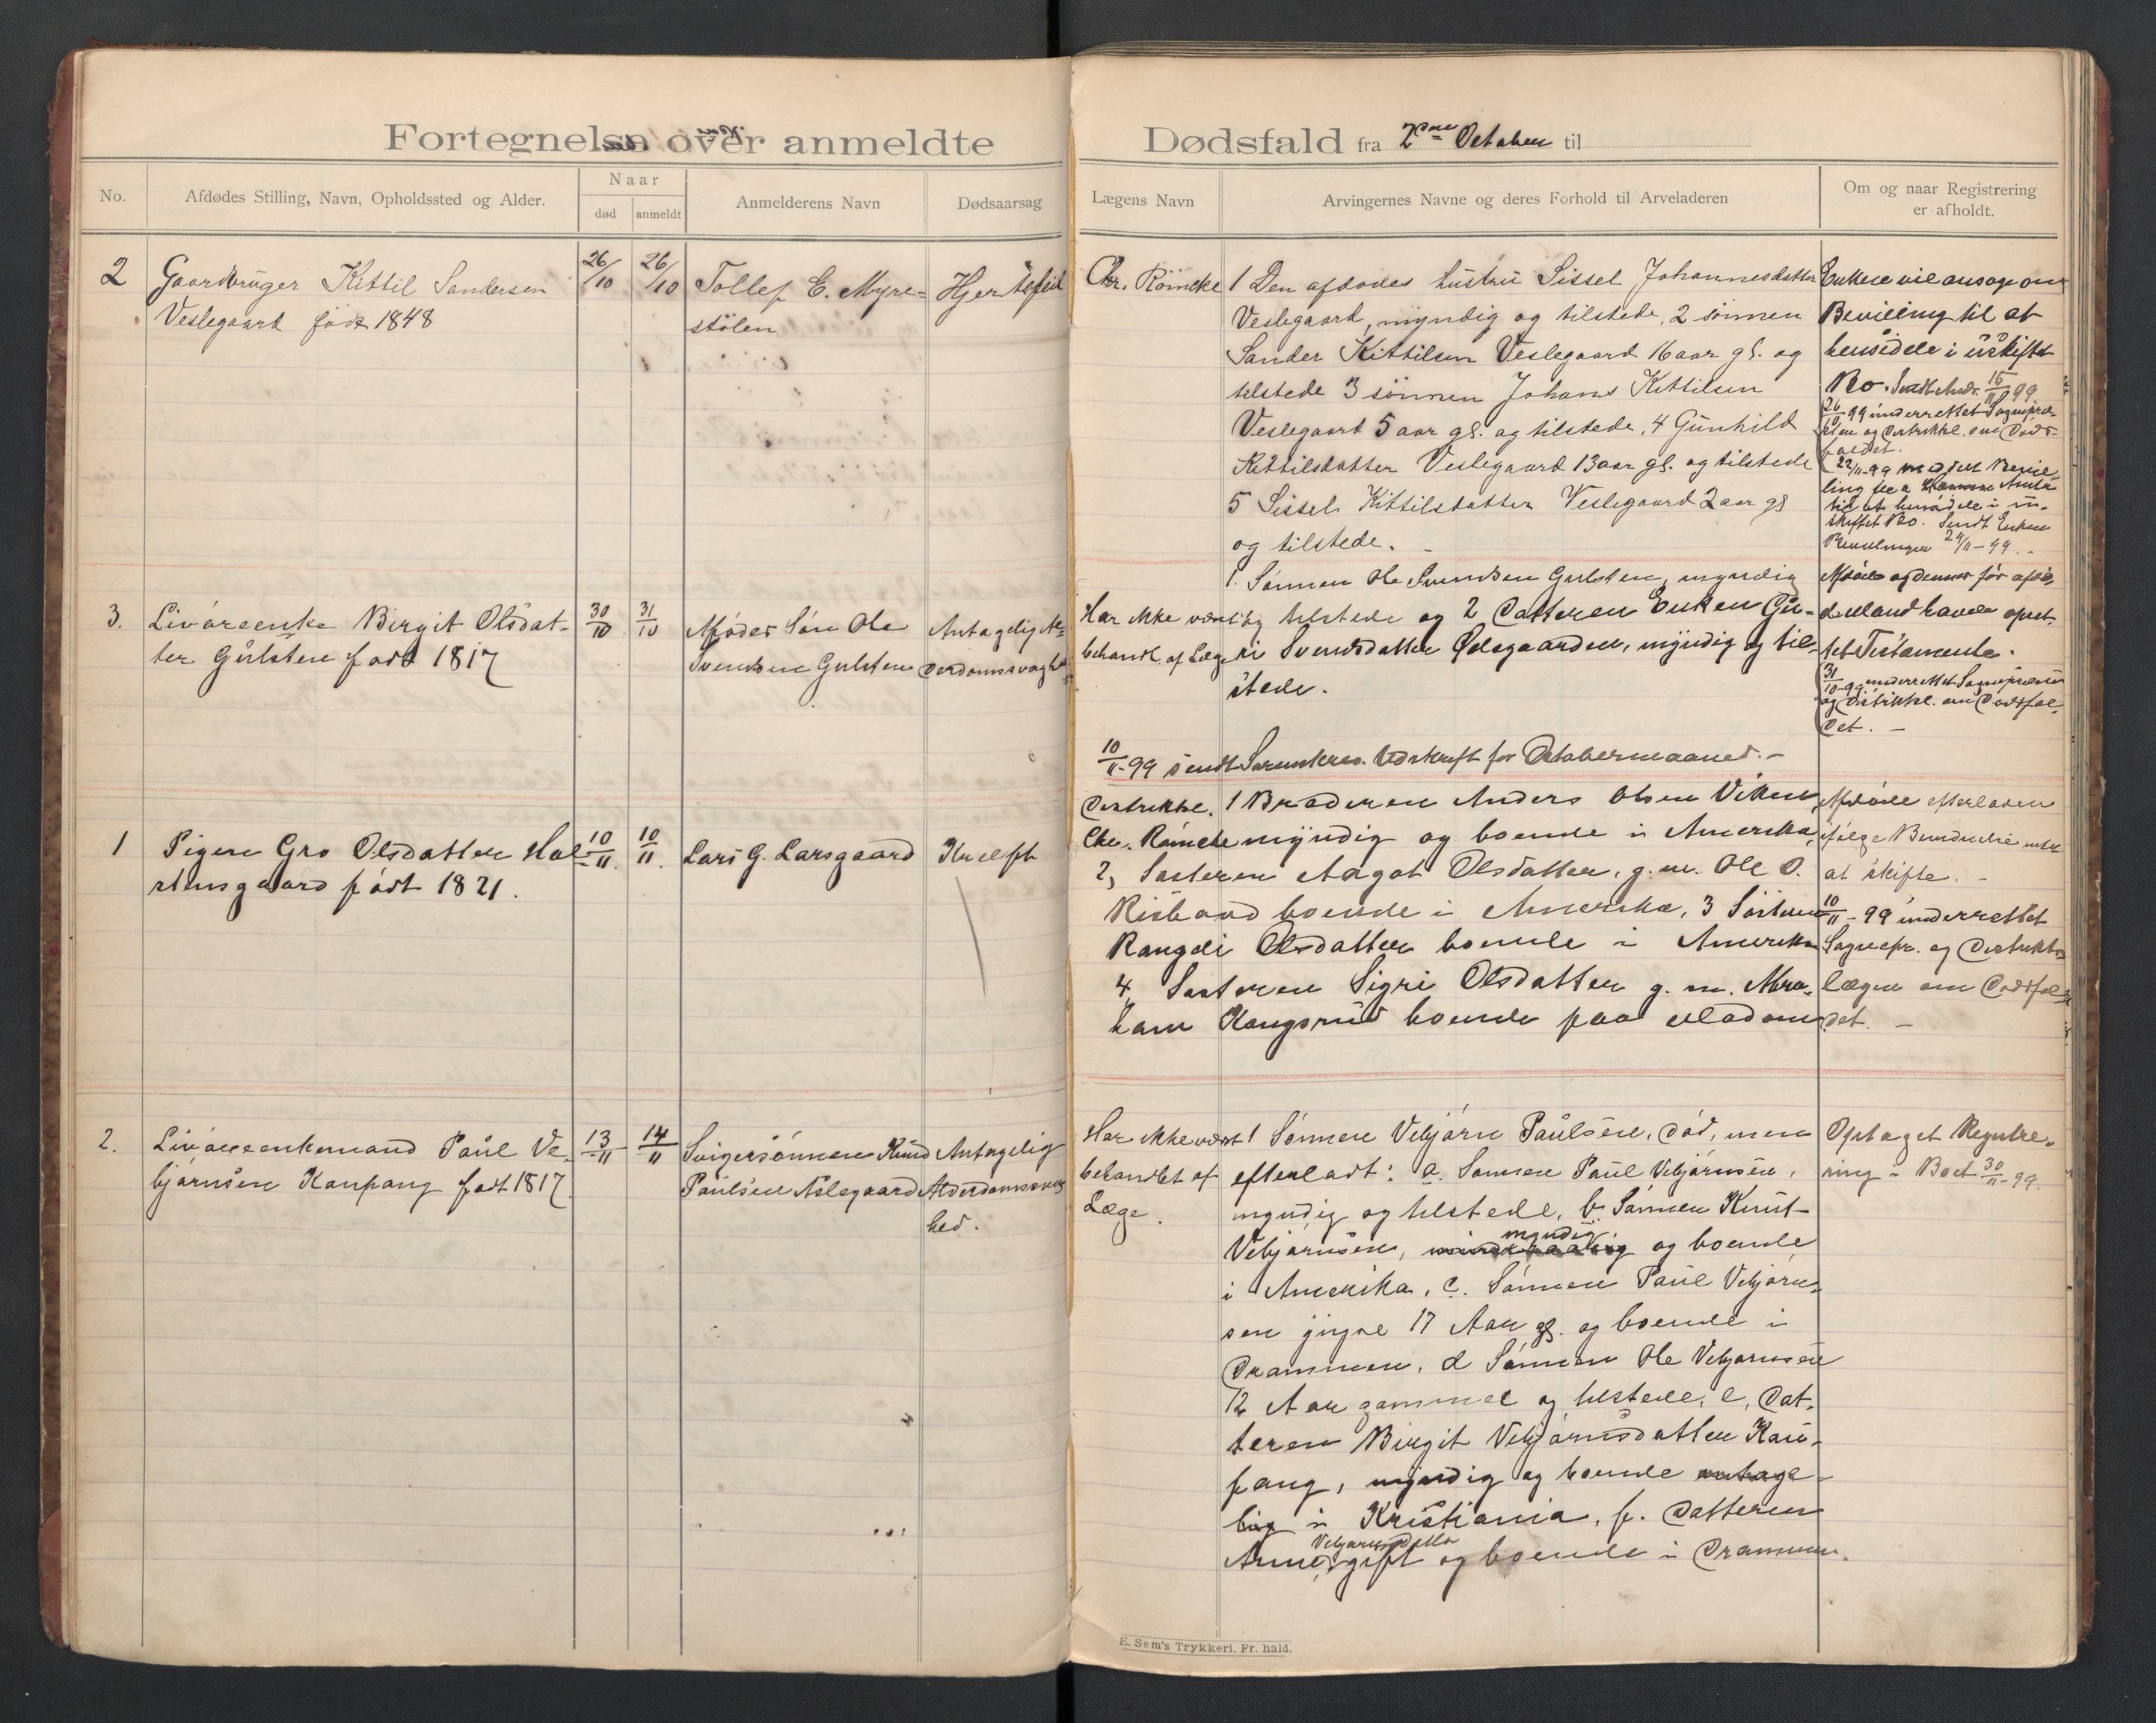 Fortegnelse over anmeldte Dødsfald fra 2den October til
No.
Afdødes Stilling, Navn, Opholdssted og Alder.
Naar
død
anmeldt
Anmelderens Navn
Dødsaarsag
Lægens Navn
Arvingernes Navne og deres Forhold til Arveladeren
Om og naar Registrering
er afholdt.
2
Gaardbruger Kittil Sandersen
Veslegaard født 1848
26/10
26/10
Tollef E. Myre-
stølen
Hjertefeil
Chr. Römcke
1 Den afdødes hustru Sissel Johannesdatter
Veslegaard, myndig og tilstede, 2 sönnen
Sander Kittilsen Veslegaard 16 aar gl. og
tilstede 3 sönnen Johans Kittilsen
Veslegaard 5 aar gl. og tilstede, 4 Gunhild
Kittilsdatter Veslegaard 13 aar gl. og tilstede
5 Sissel Kittilsdatter Veslegaard 2 aar gl
og tilstede.
Enken vil ansøge om
Bevilling til at
hensidde i uskiftet
Bo. Sendt Amt. 15/11 99.
26/10-99 underrettet Sognepræ-
sten og Distriktsl. om Døds-
faldet.
22/11-99 meddelt Bevil-
ling fra Amt
til at hensidde i u-
skiftet Bo. Sendt Enken
Bevillingen 29/11-99.
3.
Livöreenke Birgit Olsdat-
ter Gulsten født 1817
30/10
31/10
Afdødes Søn Ole
Svendsen Gulsten
Antagelig Al-
derdomssvaghed
Har ikke været
behandl. af Læge
1. Sønnen Ole Svendsen Gulsten, myndig
og tilstede og 2 Datteren Enken Gu-
ri Svendsdatter Ødegaarden, myndig og til-
stede.
Afdøde og dennes før afdø-
de Mand havde opret-
tet Testamente.
31/10-99 underrettet Sognepræsten
og Distriktsl. om Dødsfal-
det.
10/11-99 sendt Sorenskriv. Udskrift for Octobermaaned.
1
Pigen Gro Olsdatter Hal-
stensgaard født 1821.
10/11.
10/11.
Lars G. Larsgaard
Kræft
Distriktsl.
Chr. Römcke
1 Broderen Anders Olsen Viken
myndig og boende i Amerika,
2, Søsteren Aagot Olsdatter, g. m. Ole O.
Risland boende i Amerika, 3 Søsteren
Rangdi Olsdatter boende i Amerika
4, Søsteren Sigri Olsdatter g. m. Abra-
ham Kongsrud boende paa Modum
Afdøde efterladen
ifølge intet
at skifte.
10/11-99 underrettet
Sognepr. og Distrikts-
lægen om Dødsfal-
det.
2.
Livöreenkemand Paul Ve-
bjørnsen Kaupang født 1817
13/11
14/11
Svigersönnen Knud
Paulsen Aslegaard
Antagelig
Alderdomssvag
hed.
Har ikke været
behandlet af
Læge.
1 Sønnen Vebjørn Paulsen, død, men
efterladt: a. Sønnen Paul Vebjørnsen,
myndig og tilstede, b. Sønnen Knut
Vebjørnsen, myndig og boende
i Amerika, c. Sønnen Paul Vebjørn-
sen yngre 17 Aar gl. og boende i
Drammen, d Sønnen Ole Vebjørnsen
12 Aar gammel og tilstede, e, Dat-
teren Birgit Vebjørnsdatter Kau-
pang, myndig og boende antage-
lig i Kristiania, f. Datteren
Anne Vebjørnsdatter, gift og boende i Drammen.
Optaget Registre-
ring i Boet 30/11-99.
E. Sem's Trykkeri, Fr. hald.